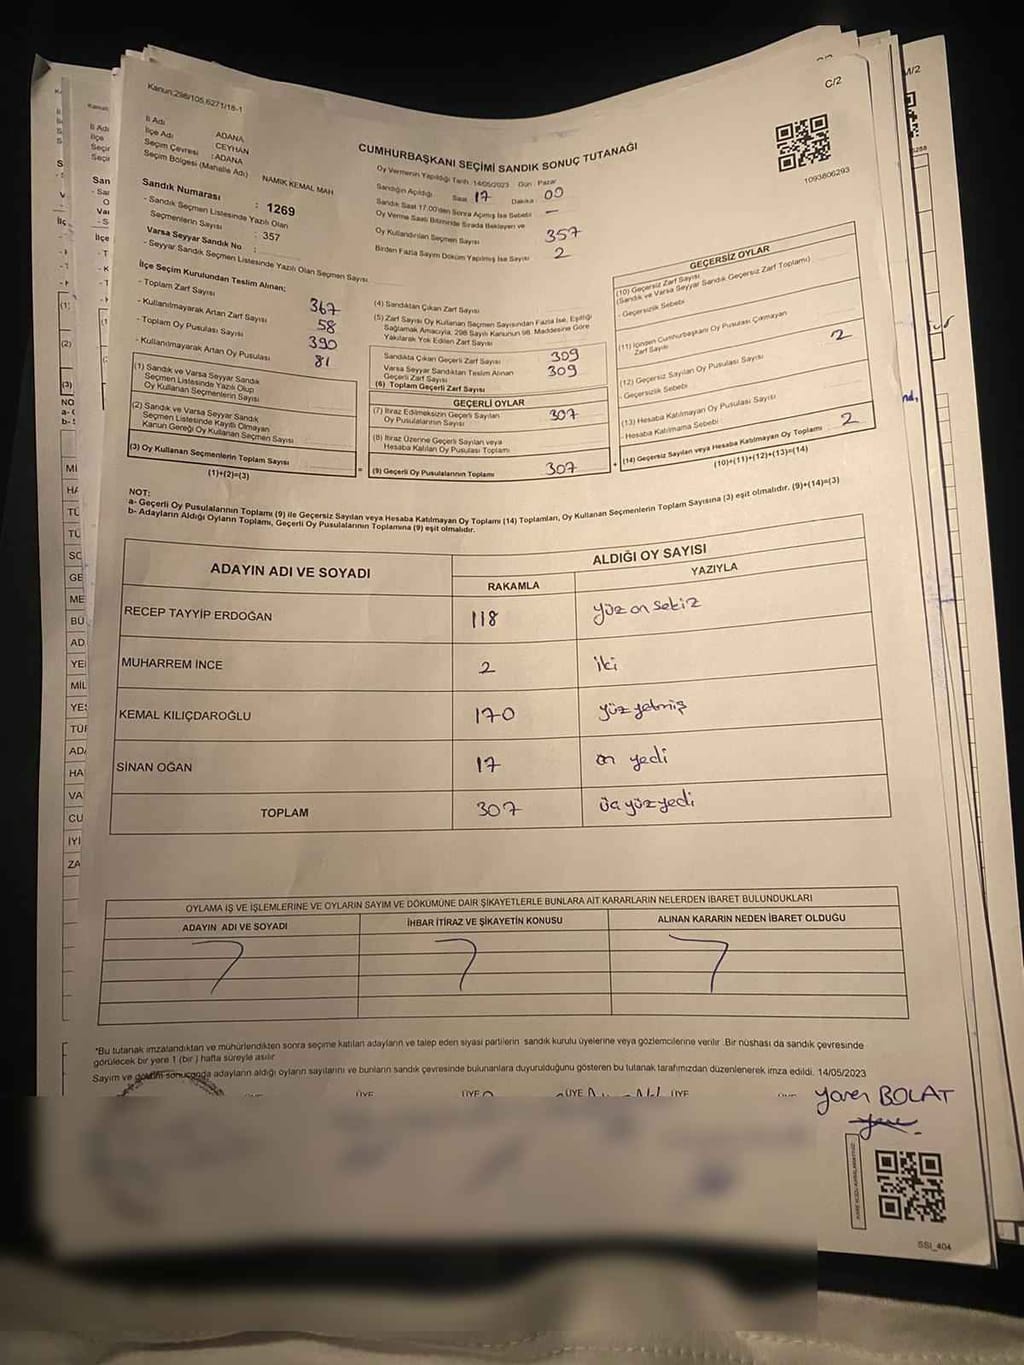 Kanun:298/105,6271/18-1
C/2
İl Adı
ADANA
İlçe Adı : CEYHAN
Seçim Çevresi : ADANA
Seçim Bölgesi (Mahalle Adı) NAMIK KEMAL MAH
Sandık Numarası : 1269
- Sandık Seçmen Listesinde Yazılı Olan
Seçmenlerin Sayısı : 357
Varsa Seyyar Sandık No :
- Seyyar Sandık Seçmen Listesinde Yazılı Olan Seçmen Sayısı
CUMHURBAŞKANI SEÇİMİ SANDIK SONUÇ TUTANAĞI
1093806293
Oy Vermenin Yapıldığı Tarih :14/05/2023 Gün : Pazar
Sandığın Açıldığı Saat : 17 Dakika : 00
Sandık Saat 17.00'den Sonra Açılmış İse Sebebi —
Oy Verme Saati Bitiminde Sırada Bekleyen ve
Oy Kullandırılan Seçmen Sayısı 357
Birden Fazla Sayım Döküm Yapılmış İse Sayısı 2
İlçe Seçim Kurulundan Teslim Alınan;
- Toplam Zarf Sayısı 367
- Kullanılmayarak Artan Zarf Sayısı 58
- Toplam Oy Pusulası Sayısı 390
- Kullanılmayarak Artan Oy Pusulası 81
(1) Sandık ve Varsa Seyyar Sandık
Seçmen Listesinde Yazılı Olup
Oy Kullanan Seçmenlerin Sayısı
(2) Sandık ve Varsa Seyyar Sandık
Seçmen Listesinde Kayıtlı Olmayan
Kanun Gereği Oy Kullanan Seçmen Sayısı
(3) Oy Kullanan Seçmenlerin Toplam Sayısı
(1)+(2)=(3)
(4) Sandıktan Çıkan Zarf Sayısı
(5) Zarf Sayısı Oy Kullanan Seçmen Sayısından Fazla İse, Eşitliği
Sağlamak Amacıyla, 298 Sayılı Kanunun 98. Maddesine Göre
Yakılarak Yok Edilen Zarf Sayısı
Sandıkta Çıkan Geçerli Zarf Sayısı 309
Varsa Seyyar Sandıktan Teslim Alınan
Geçerli Zarf Sayısı 309
(6) Toplam Geçerli Zarf Sayısı
GEÇERLİ OYLAR
(7) İtiraz Edilmeksizin Geçerli Sayılan
Oy Pusulalarının Sayısı 307
(8) İtiraz Üzerine Geçerli Sayılan veya
Hesaba Katılan Oy Pusulası Toplamı
= (9) Geçerli Oy Pusulalarının Toplamı 307
GEÇERSİZ OYLAR
(10) Geçersiz Zarf Sayısı
(Sandık ve Varsa Seyyar Sandık Geçersiz Zarf Toplamı)
- Geçersizlik Sebebi
(11) İçinden Cumhurbaşkanı Oy Pusulası Çıkmayan
Zarf Sayısı
2
(12) Geçersiz Sayılan Oy Pusulası Sayısı
- Geçersizlik Sebebi
(13) Hesaba Katılmayan Oy Pusulası Sayısı
- Hesaba Katılmama Sebebi
+ (14) Geçersiz Sayılan veya Hesaba Katılmayan Oy Toplamı 2
(10)+(11)+(12)+(13)=(14)
NOT:
a- Geçerli Oy Pusulalarının Toplamı (9) ile Geçersiz Sayılan veya Hesaba Katılmayan Oy Toplamı (14) Toplamları, Oy Kullanan Seçmenlerin Toplam Sayısına (3) eşit olmalıdır. (9)+(14)=(3)
b- Adayların Aldığı Oyların Toplamı, Geçerli Oy Pusulalarının Toplamına (9) eşit olmalıdır.
ADAYIN ADI VE SOYADI
ALDIĞI OY SAYISI
RAKAMLA YAZIYLA
RECEP TAYYİP ERDOĞAN 118 yüz on sekiz
MUHARREM İNCE 2 iki
KEMAL KILIÇDAROĞLU 170 yüz yetmiş
SİNAN OĞAN 17 on yedi
TOPLAM 307 üç yüz yedi
OYLAMA İŞ VE İŞLEMLERİNE VE OYLARIN SAYIM VE DÖKÜMÜNE DAİR ŞİKAYETLERLE BUNLARA AİT KARARLARIN NELERDEN İBARET BULUNDUKLARI
ADAYIN ADI VE SOYADI İHBAR İTİRAZ VE ŞİKAYETİN KONUSU ALINAN KARARIN NEDEN İBARET OLDUĞU
*Bu tutanak imzalandıktan ve mühürlendikten sonra seçime katılan adayların ve talep eden siyasi partilerin sandık kurulu üyelerine veya gözlemcilerine verilir. Bir nüshası da sandık çevresinde
görülecek bir yere 1 (bir) hafta süreyle asılır
Sayım ve döküm sonucunda adayların aldığı oyların sayılarını ve bunların sandık çevresinde bulunanlara duyurulduğunu gösteren bu tutanak tarafımızdan düzenlenerek imza edildi. 14/05/2023
ÜYE ÜYE ÜYE ÜYE
Yaren BOLAT
SSI_404